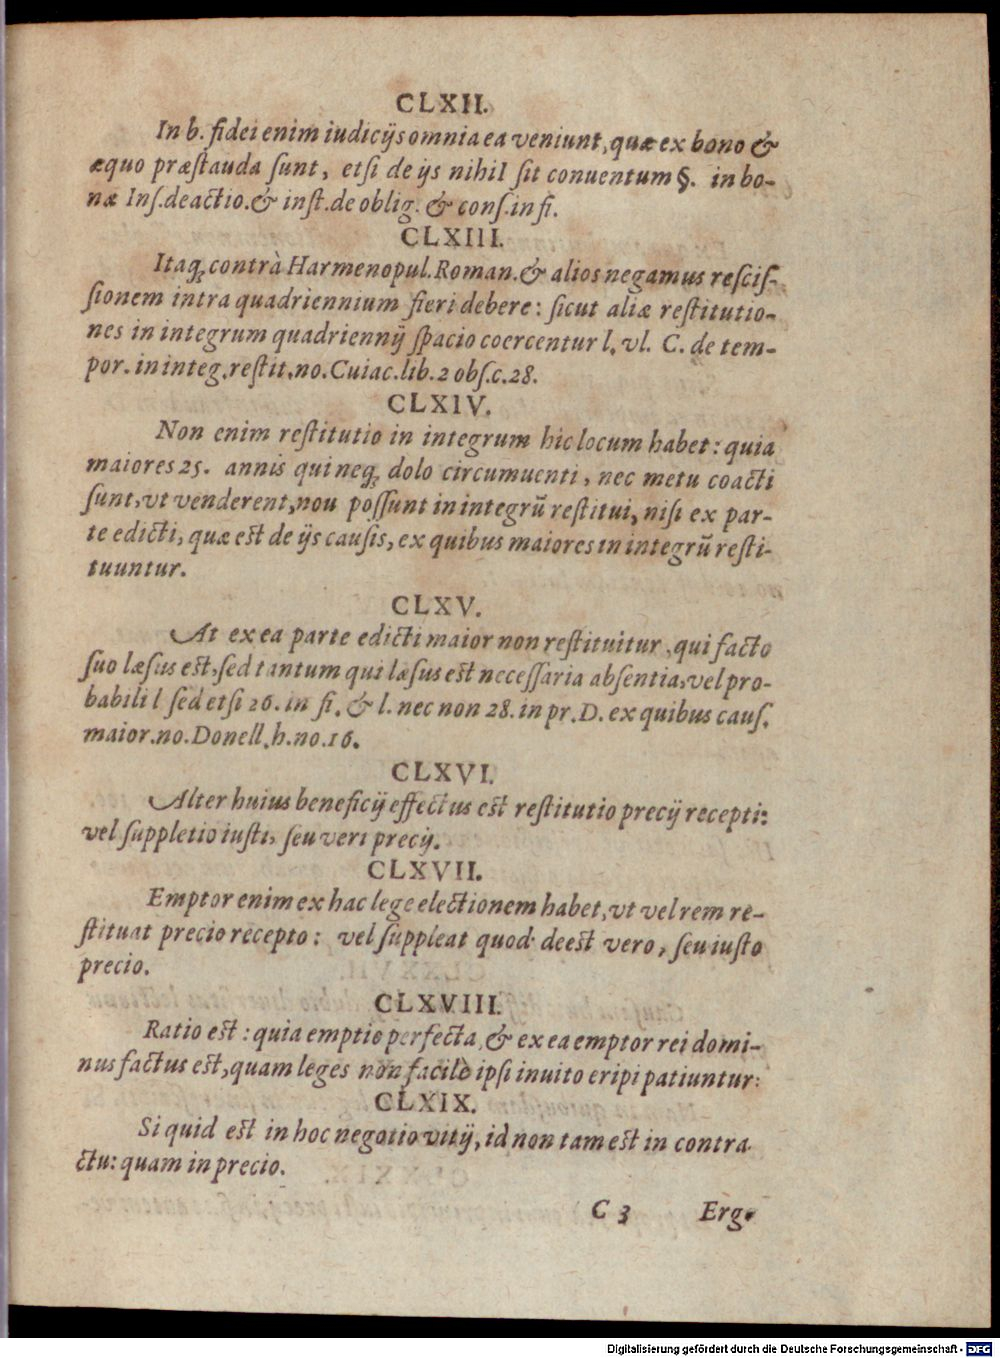 CLXII.
In b. fidei enim iudicijs omnia ea veniunt, quæ ex bono &
æquo præſtauda ſunt, etſi de ijs nihil ſit conuentum §. in bo-
næ Inſ. de actio. & inſt. de oblig. & conſ. in fi.
CLXIII.
Itaq́; contrà Harmenopul. Roman. & alios negamus reſciſ-
ſionem intra quadriennium fieri debere: ſicut aliæ reſtitutio-
nes in integrum quadriennij ſpacio coercentur l. vl. C. de tem-
por. in integ. reſtit. no. Cuiac. lib. 2 obſ. c. 28.
CLXIV.
Non enim reſtitutio in integrum hic locum habet: quia
maiores 25. annis qui neq́; dolo circumuenti, nec metu coacti
ſunt, vt venderent, nou poſſunt in integrũ reſtitui, niſi ex par-
te edicti, quæ est de ijs cauſis, ex quibus maiores in integrũ reſti-
tuuntur.
CLXV.
At ex ea parte edicti maior non reſtituitur, qui facto
ſuo læſus eſt, ſed tantum qui læſus est neceſſaria abſentia, vel pro-
babili l ſed etſi 26. in fi. & l. nec non 28. in pr. D. ex quibus cauſ.
maior. no. Donell. h. no. 16.
CLXVI.
Alter huius beneficij effectus est reſtitutio precij recepti:
vel ſuppletio iuſti, ſeu veri precij.
CLXVII.
Emptor enim ex hac lege electionem habet, vt vel rem re-
ſtituat precio recepto: vel ſuppleat quod deest vero, ſeu iuſto
precio.
CLXVIII.
Ratio est: quia emptio perfecta, & ex ea emptor rei domi-
nus factus est, quam leges non facilè ipſi inuito eripi patiuntur:
CLXIX.
Si quid est in hoc negotio vitij, id non tam est in contra
ctu: quam in precio.
C 3 Ergo
Digitalisierung gefördert durch die Deutsche Forschungsgemeinschaft - DFG